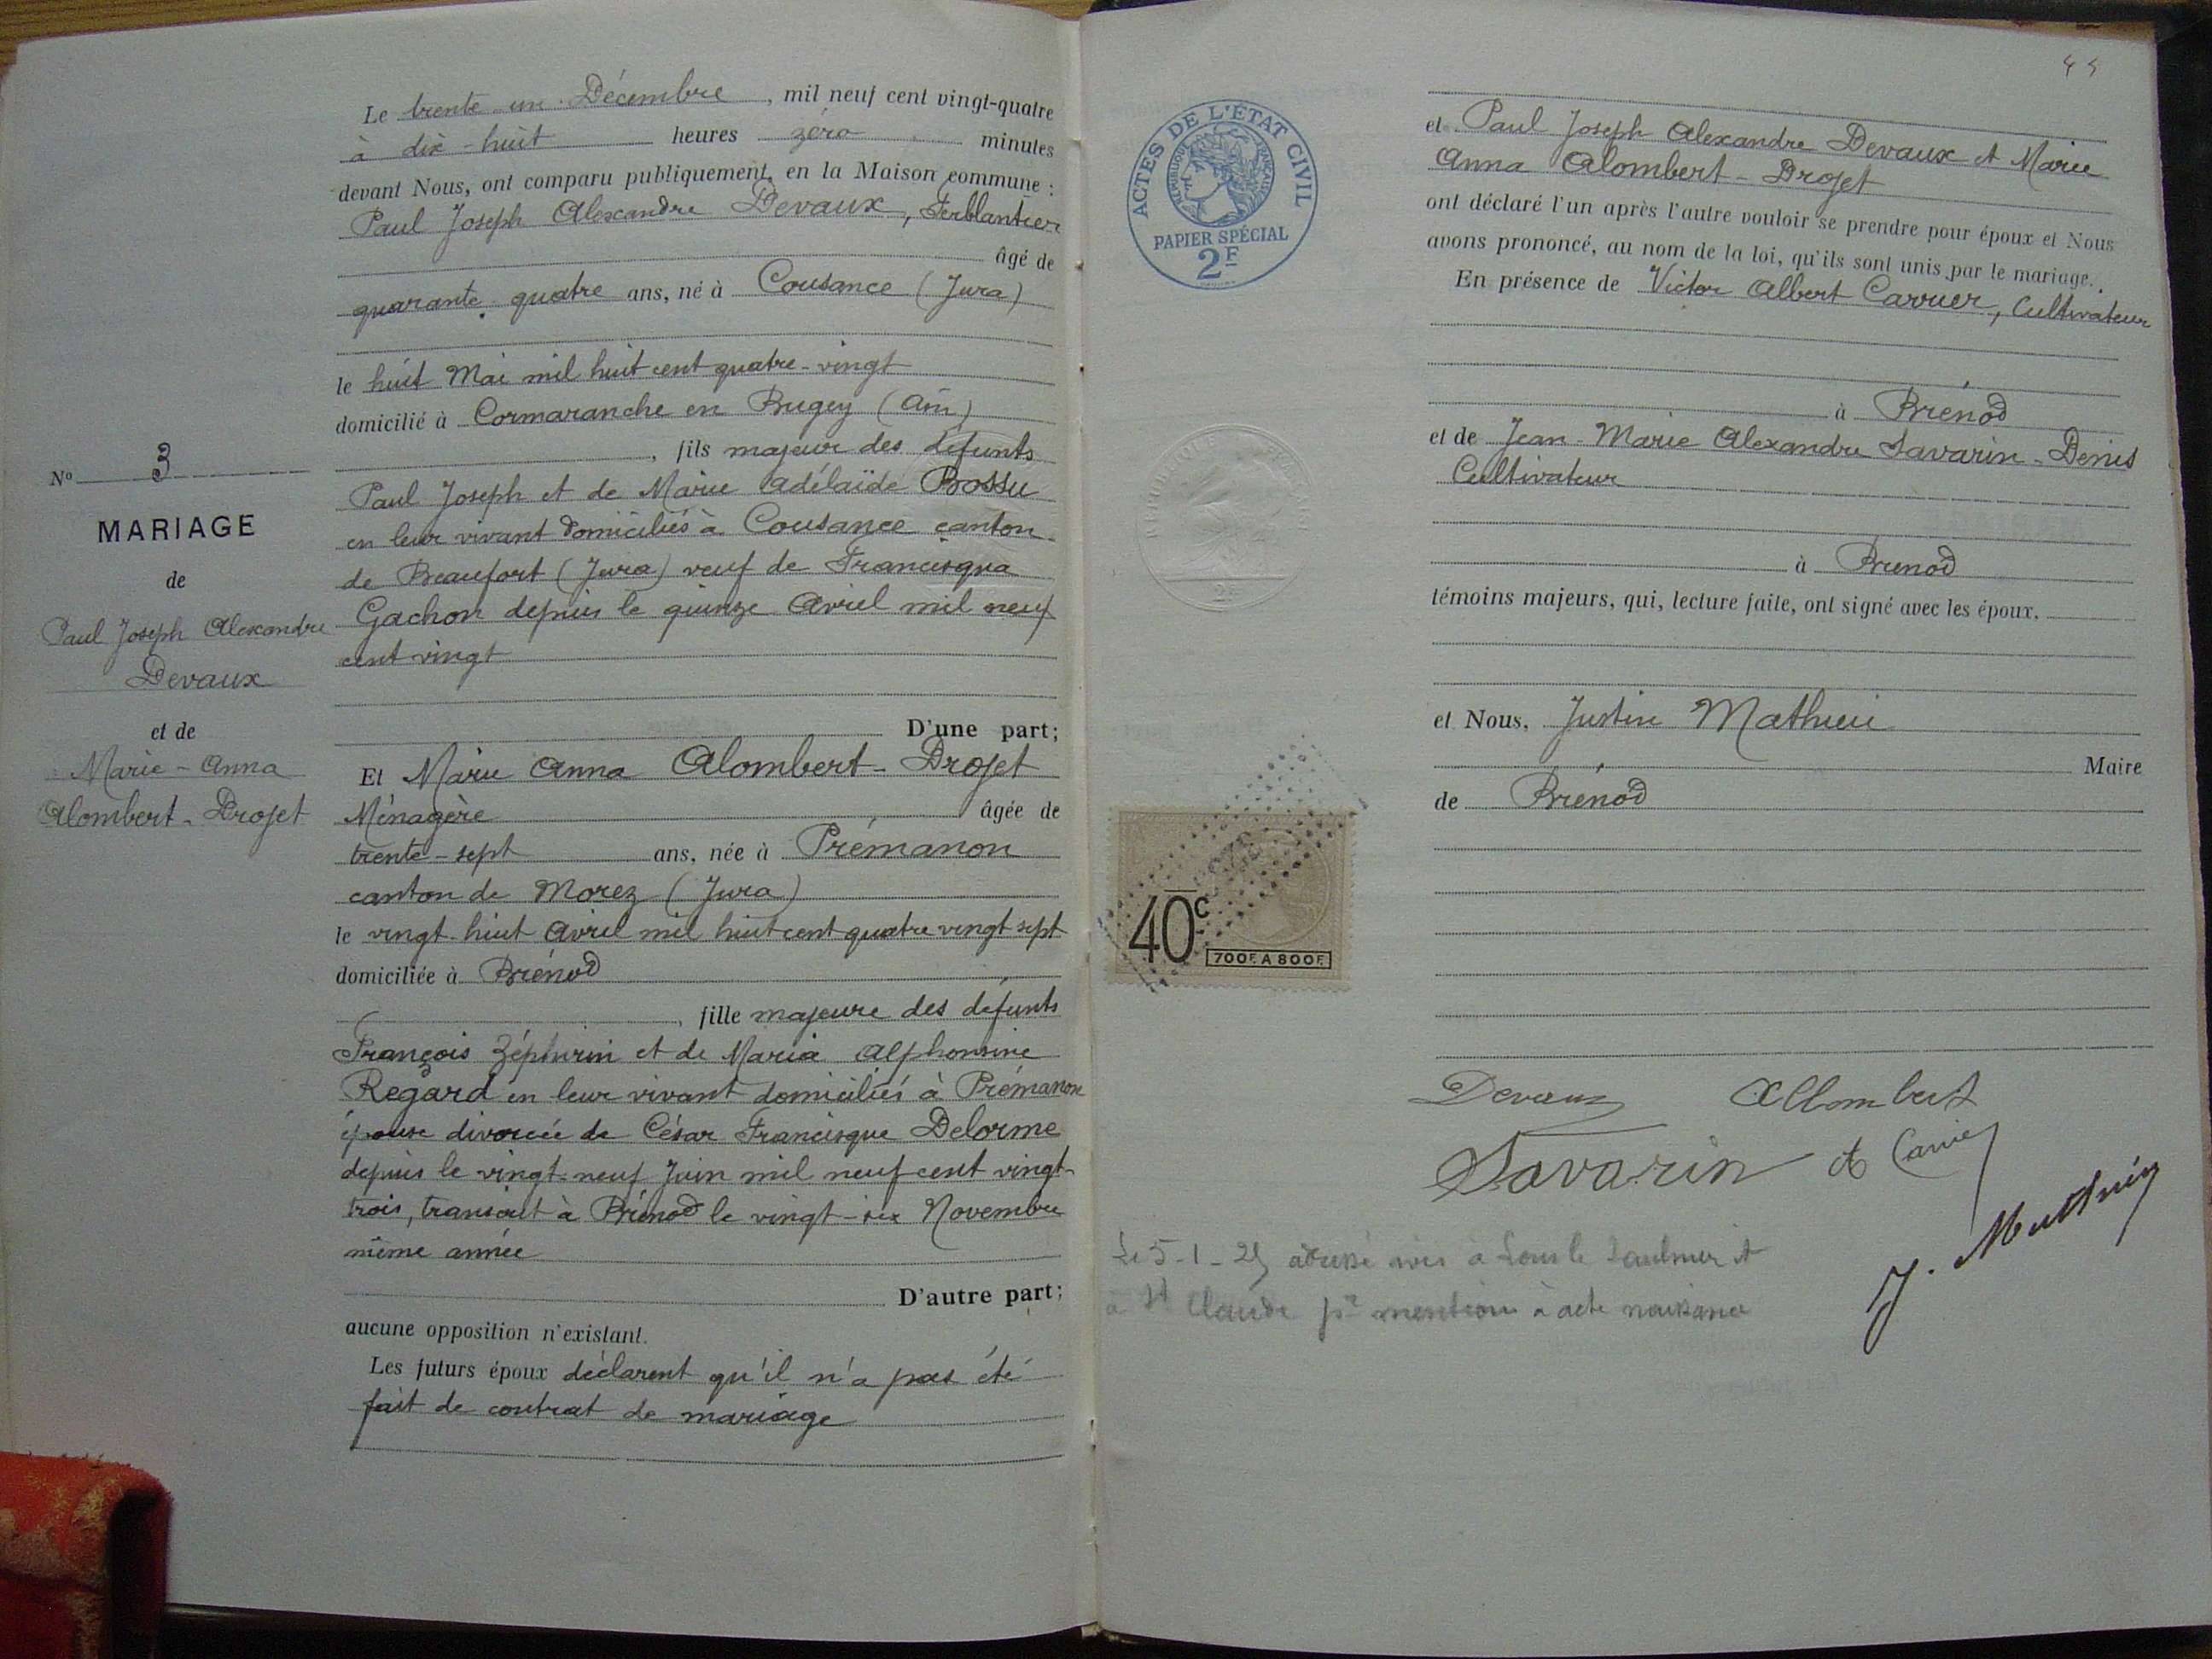 Le trente un Décembre, mil neuf cent vingt-quatre
à dix-huit heures zéro minutes
devant Nous, ont comparu publiquement, en la Maison commune :
Paul Joseph Alexandre Devaux, Ferblantier
âgé de
quarante quatre ans, né à Cousance (Jura)
le huit Mai mil huit cent quatre-vingt
domicilié à Cormaranche en Bugey (Ain)
, fils majeur des défunts
Paul Joseph et de Marie Adélaïde Bossu
en leur vivant domiciliés à Cousance canton
de Beaufort (Jura) veuf de Francisqua
Gachon depuis le quinze Avril mil neuf
cent vingt
D'une part;
Et Marie Anna Alombert-Drojet
Ménagère âgée de
trente-sept ans, née à Prémanon
canton de Morez (Jura)
le vingt-huit Avril mil huit cent quatre vingt sept
domiciliée à Brénod
, fille majeure des défunts
François Zéphirin et de Maria Alphonsine
Regard en leur vivant domiciliés à Prémanon
épouse divorcée de César Francisque Delorme
depuis le vingt-neuf Juin mil neuf cent vingt-
trois, transcrit à Brénod le vingt-six Novembre
même année
D'autre part;
aucune opposition n'existant.
Les futurs époux déclarent qu'il n'a pas été
fait de contrat de mariage
No 3
MARIAGE
de
Paul Joseph Alexandre
Devaux
et de
Marie-Anna
Alombert-Drojet
ACTES DE L'ÉTAT CIVIL
RÉPUBLIQUE FRANÇAISE
PAPIER SPÉCIAL
2F
40c
700F. A 800F.
et Paul Joseph Alexandre Devaux et Marie
Anna Alombert-Drojet
ont déclaré l'un après l'autre vouloir se prendre pour époux et Nous
avons prononcé, au nom de la loi, qu'ils sont unis par le mariage.
En présence de Victor Albert Carrier, Cultivateur
à Brénod
et de Jean-Marie Alexandre Savarin-Denis
Cultivateur
à Brénod
témoins majeurs, qui, lecture faite, ont signé avec les époux.
et Nous, Justin Mathieu
Maire
de Brénod
Devaux Allombert
Savarin A Carrier
J. Mathieu
Le 5-1-25 adressé avis à Lons le Saulnier et
à St Claude pr mention à acte naissance